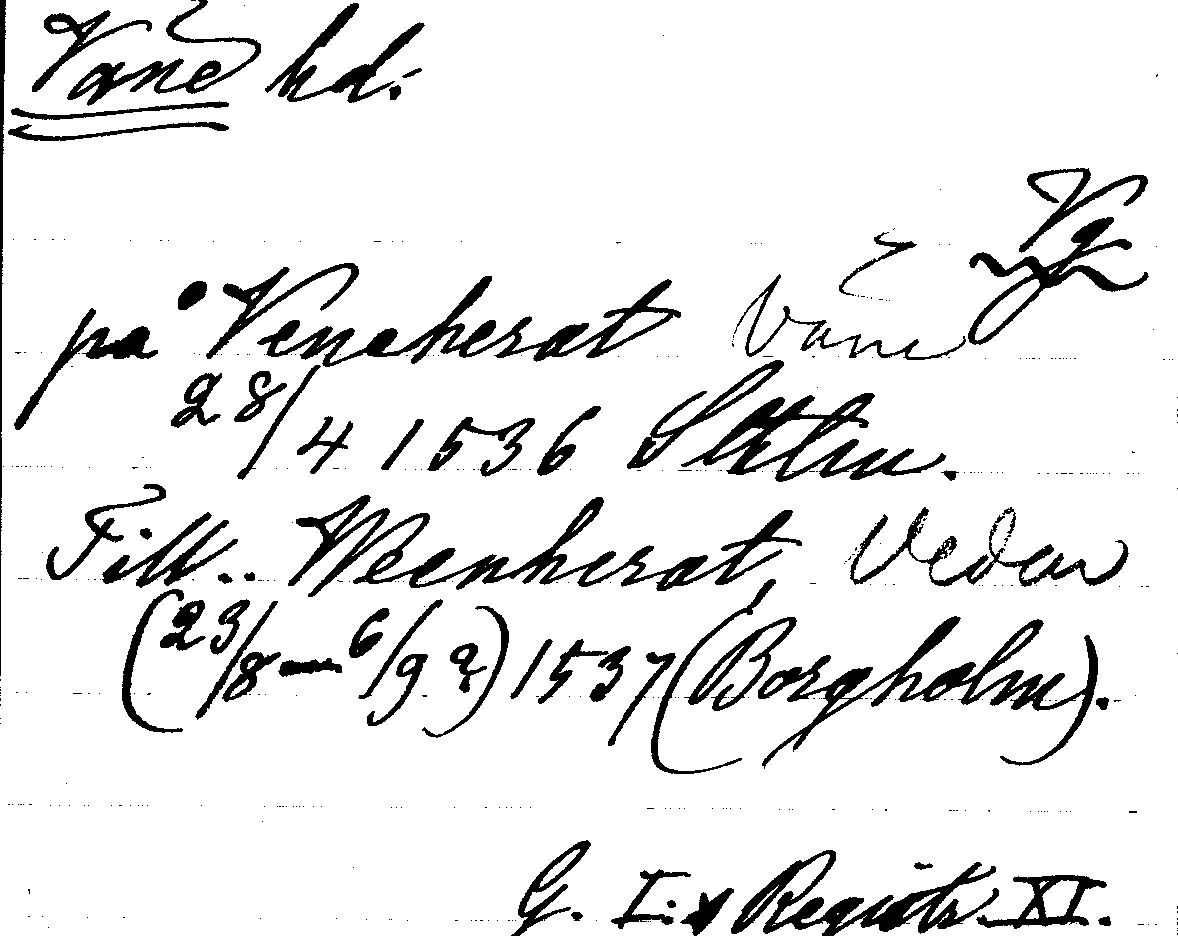 Våne hd.
Vg
på Veneherat Väne
28/4 1536 Sthlm.
Till.. Weenherat, Vedum
(23/8 — 6/9 ?) 1537 (Borgholm).
G. I:s Registr. XI.